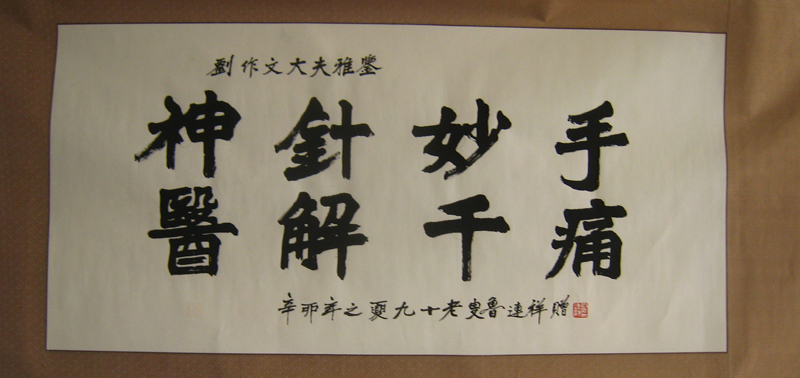 劉作文大夫雅鑒
神針妙手
醫解千痛
辛卯年之夏九十老叟魯連祥贈